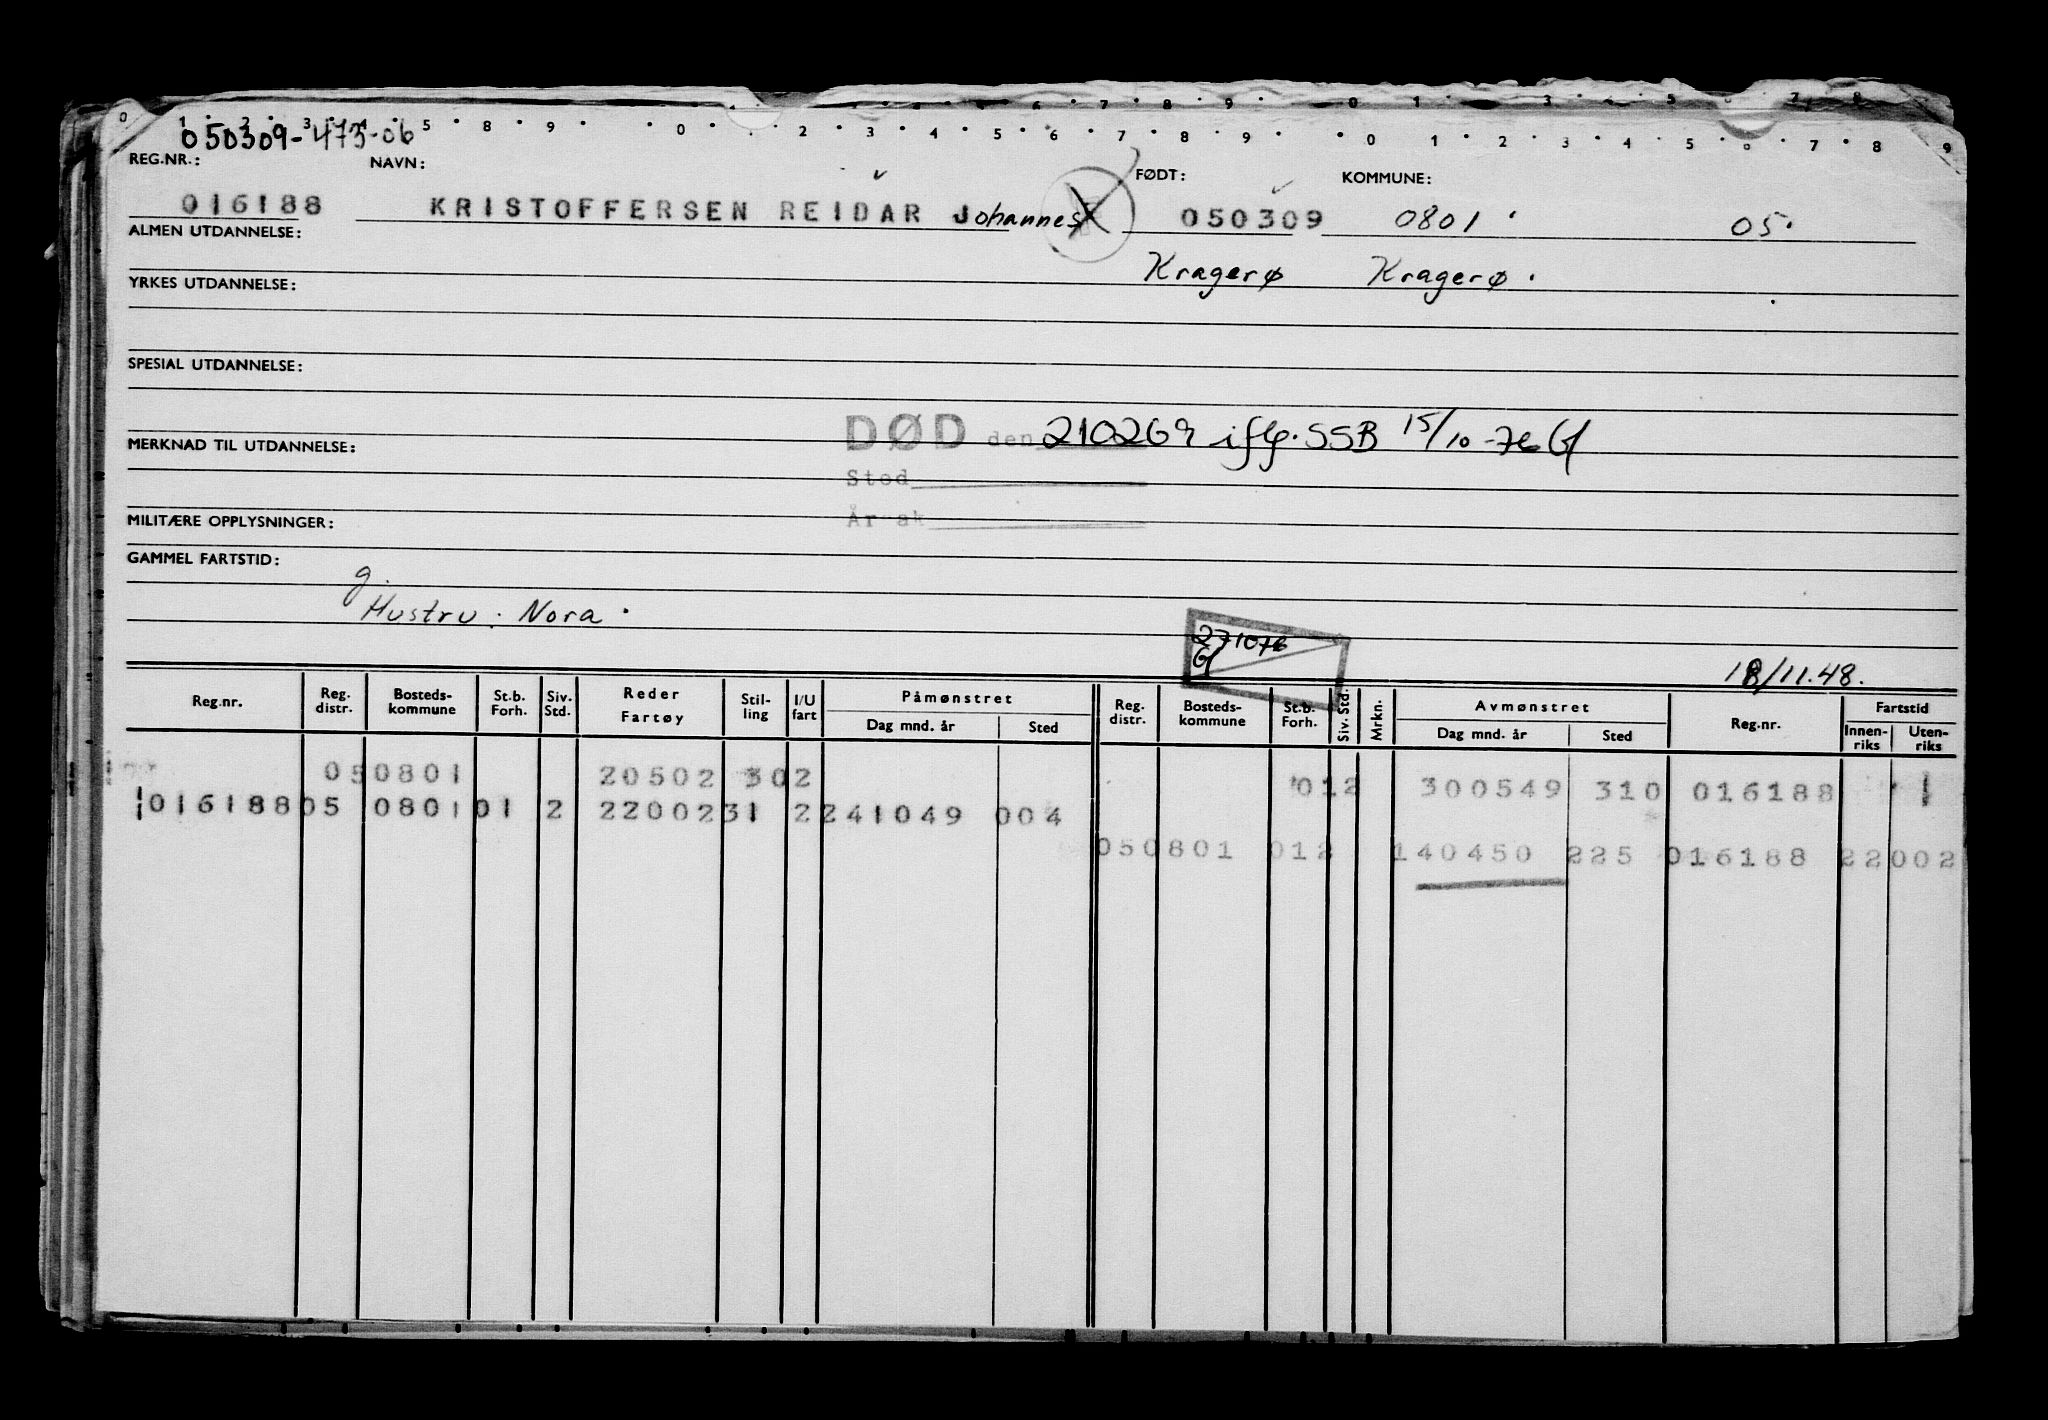 050309-473-06
REG.NR.: NAVN: FØDT: KOMMUNE:
016188 KRISTOFFERSEN REIDAR Johannes 050309 0801 05
ALMEN UTDANNELSE:
Kragerø Kragerø
YRKES UTDANNELSE:
SPESIAL UTDANNELSE:
DØD den 210269 iflg. SSB 15/10-76
MERKNAD TIL UTDANNELSE:
Sted
MILITÆRE OPPLYSNINGER:
GAMMEL FARTSTID:
g.
Hustru: Nora
271076
18/11.48.
Reg.nr. Reg. distr. Bosteds-kommune St.b. Forh. Siv. Std. Reder Fartøy Stil-ling I/U fart Påmønstret Dag mnd. år Sted Reg. distr. Bosteds-kommune St.b. Forh. Siv. Std. Mrkn. Avmønstret Dag mnd. år Sted Reg.nr. Fartstid Innen-riks Uten-riks
050801 20502 302 012 300549 310 016188 1
016188 05 0801 01 2 22002 31 2 241049 004
050801 012 140450 225 016188 22002